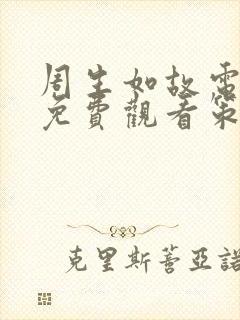 周生如故電
免費觀看策
克里斯蒂亞諾